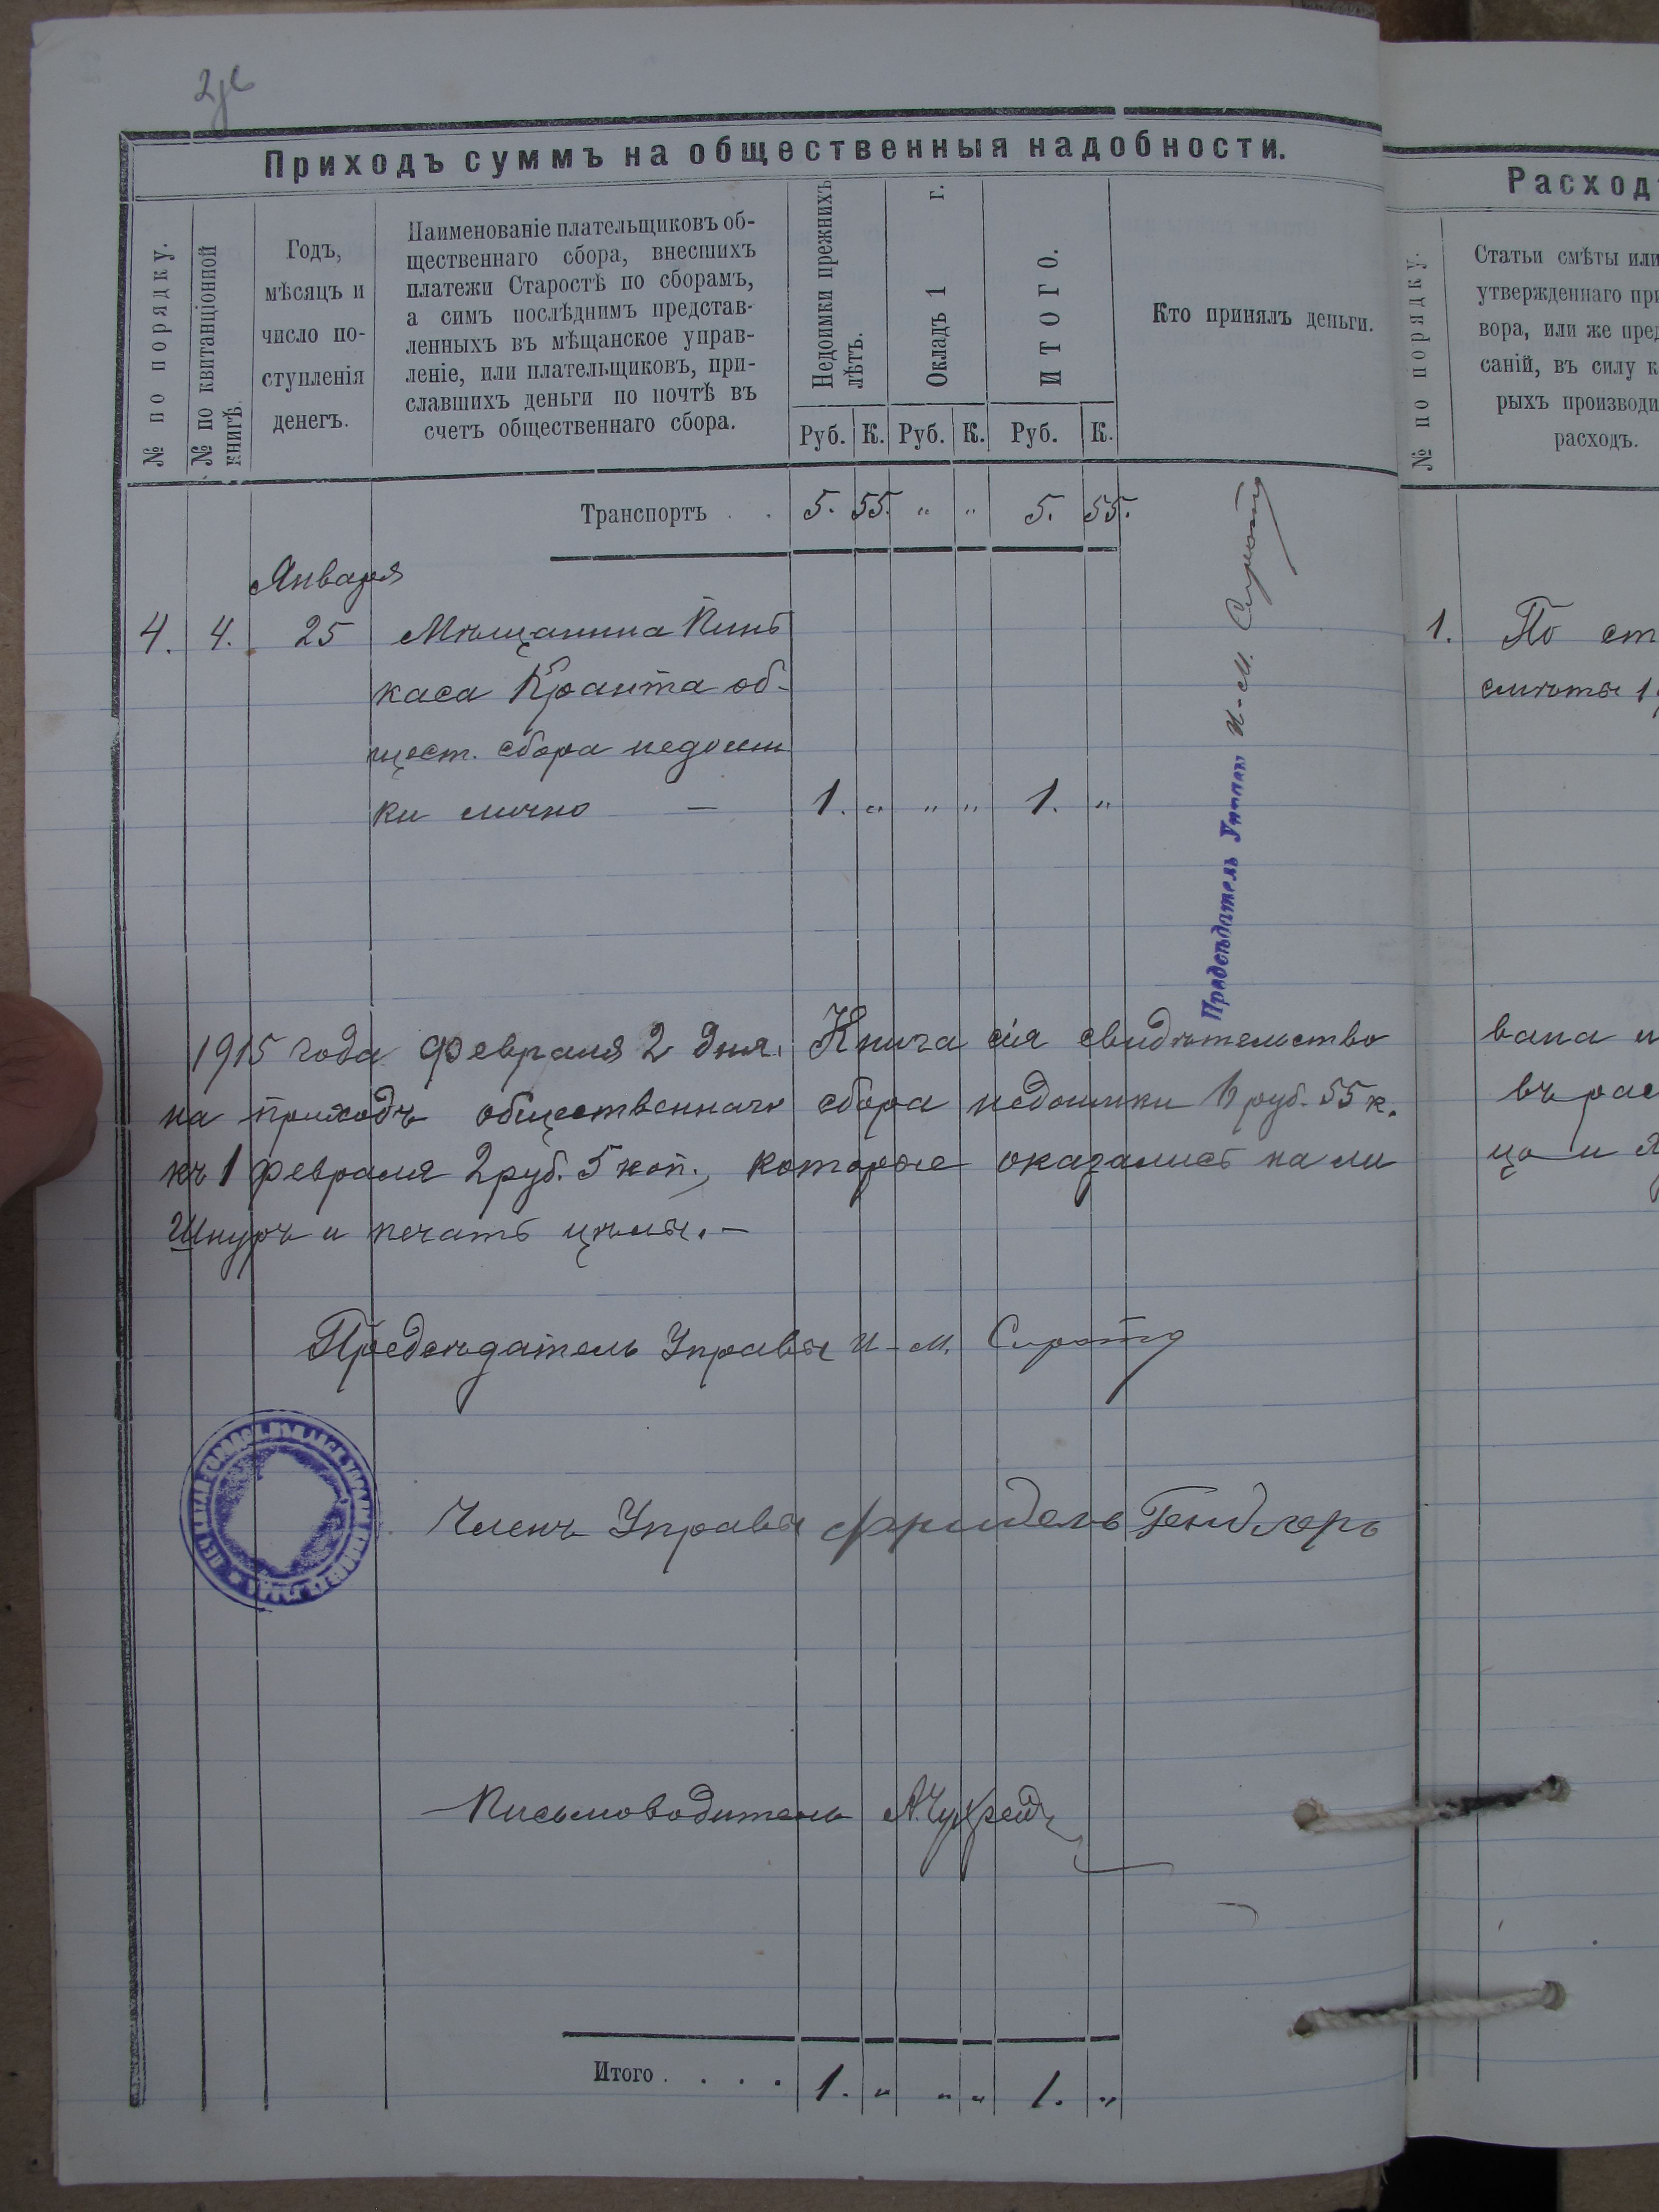 Приходъ суммъ на общественныя надобности.
№ по порядку.
№ по квитанціонной
книгѣ.
Годъ,
мѣсяцъ и
число по-
ступленія
денегъ.
Наименованіе плательщиковъ об-
щественнаго сбора, внесшихъ
платежи Старостѣ по сборамъ,
а симъ послѣднимъ представ-
ленныхъ въ мѣщанское управ-
леніе, или плательщиковъ, при-
славшихъ деньги по почтѣ въ
счетъ общественнаго сбора.
Недоимки прежнихъ
лѣтъ.
Окладъ 1 г.
ИТОГО.
Руб. К. Руб. К. Руб. К.
Кто принялъ деньги.
Транспортъ . . 5. 55. „ „ 5. 55.
Января
4. 4. 25 Мѣщанина Пинь
каса Кранта об-
щест. сбора недоим
ки лично — 1. „ „ „ 1. „
Предсѣдатель И-М. Сирота
1915 года Февраля 2 дня. Книга сія свидѣтельство
на приходъ общественнаго сбора недоимки 6 руб. 55 к.
къ 1 февраля 2 руб. 5 коп., которые оказались на ли
Шнуръ и печать цѣлы.—
Предсѣдатель Управы И-М. Сирота
Членъ Управы Фридель Гендлеръ
Письмоводитель
Итого . . . . 1. „ „ „ 1. „
Расход
№ по порядку.
Статьи смѣты или
утвержденнаго при
вора, или же пред
саній, въ силу к
рыхъ производи
расходъ.
1. По ст
смѣты 1
вана и
въ рас
цо и